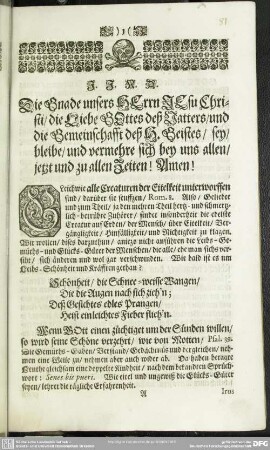 )1(
J. J. N. A.
Die Gnade unsers HErrn JEsu Chri-
sti/ die Liebe GOttes deß Vatters/ und
die Gemeinschafft deß H. Geistes/ sey/
bleibe/ und vermehre sich bey uns allen/
jetzt und zu allen Zeiten! Amen!
Gleichwie alle Creaturen der Eitelkeit unterworffen
sind/ darüber sie seuffzen/ Rom. 8. Also/ Geliebte
und zum Theil/ ja den mehrern Theil hertz- und schmertz-
lich-betrübte Zuhörer/ findet insonderheit die edelste
Creatur auf Erden/ der Mensch/ über Eitelkeit/ Ver-
gänglichkeit/ Hinfälligkeit/ und Nichtigkeit zu klagen.
Wir wollen/ dißes darzuthun/ anitzo nicht anführen die Leibs-
müths- und Glücks-Güter der Menschen/ die alle/ ehe man sichs ver-
siehet/ sich ändern und wol gar verschwinden. Wie bald ist es um
Leibs-Schönheit und Kräfften gethan?
Schönheit/ die Schnee-weisse Wangen/
Die die Augen nach sich zieh'n;
Deß Gesichtes edles Prangen/
Heist ein leichtes Fieber flieh'n.
Wenn GOtt einen züchtiget um der Sünden willen/
so wird seine Schöne verzehrt/ wie von Motten/ Psal. 39.
Gemüths-Gaben/ Verstand/ Gedächtnus und dergleichen/ neh-
men eine Weile zu/ nehmen aber auch wieder ab. Da haben betagte
Leuthe gleichsam eine doppelte Kindheit/ nach dem bekandten Sprich-
wort: Senes bis pueri. Wie eitel und ungewiß die Glücks-Güter
seyen/ lehret die tägliche Erfahrenheit.
A Irus